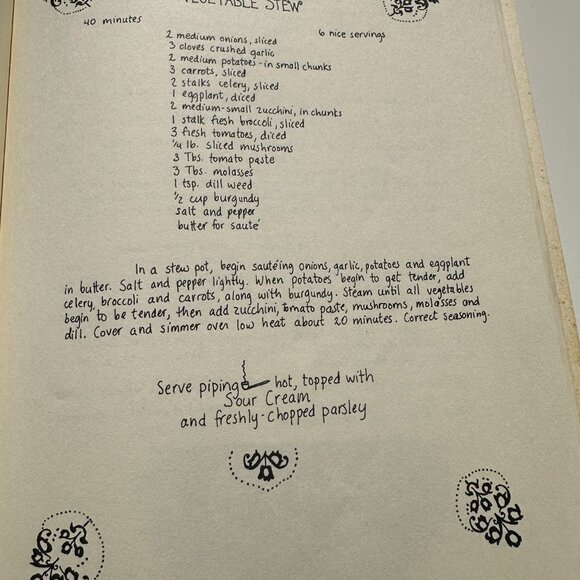 VEGETABLE STEW
40 minutes
6 nice servings
2 medium onions, sliced
3 cloves crushed garlic
2 medium potatoes - in small chunks
3 carrots, sliced
2 stalks celery, sliced
1 eggplant, diced
2 medium-small zucchini, in chunks
1 stalk fresh broccoli, sliced
3 fresh tomatoes, diced
1/4 lb. sliced mushrooms
3 Tbs. tomato paste
3 Tbs. molasses
1 tsp. dill weed
1/2 cup burgundy
salt and pepper
butter for sauté
In a stew pot, begin sautéing onions, garlic, potatoes and eggplant
in butter. Salt and pepper lightly. When potatoes begin to get tender, add
celery, broccoli and carrots, along with burgundy. Steam until all vegetables
begin to be tender, then add zucchini, tomato paste, mushrooms, molasses and
dill. Cover and simmer over low heat about 20 minutes. Correct seasoning.
Serve piping hot, topped with
Sour Cream
and freshly-chopped parsley